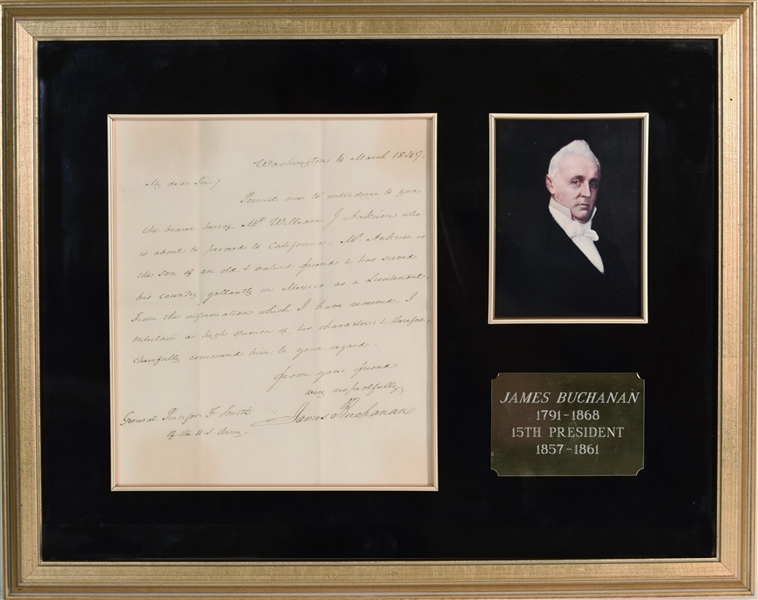 Washington 6 March 1849.
My dear Sir,
Permit me to introduce to you
the bearer hereof, Mr. William J who
is about to proceed to California. Mr. is
the son of an old & valued friend & has served
his country gallantly in Mexico as a Lieutenant.
From the information which I have received, I
entertain a high opinion of his character & therefore
cheerfully commend him to your regard.
from your friend
very respectfully
James Buchanan
General Persifor F. Smith
of the U.S. Army.
JAMES BUCHANAN
1791-1868
15TH PRESIDENT
1857-1861